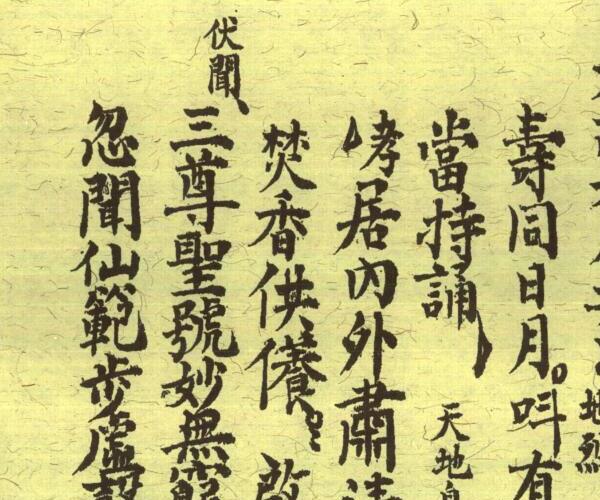 地烈
壽同日月。叫有
當持誦 天地
居內外肅
焚香供養 啟
伏聞 三尊聖號妙無
忽聞仙範步虛